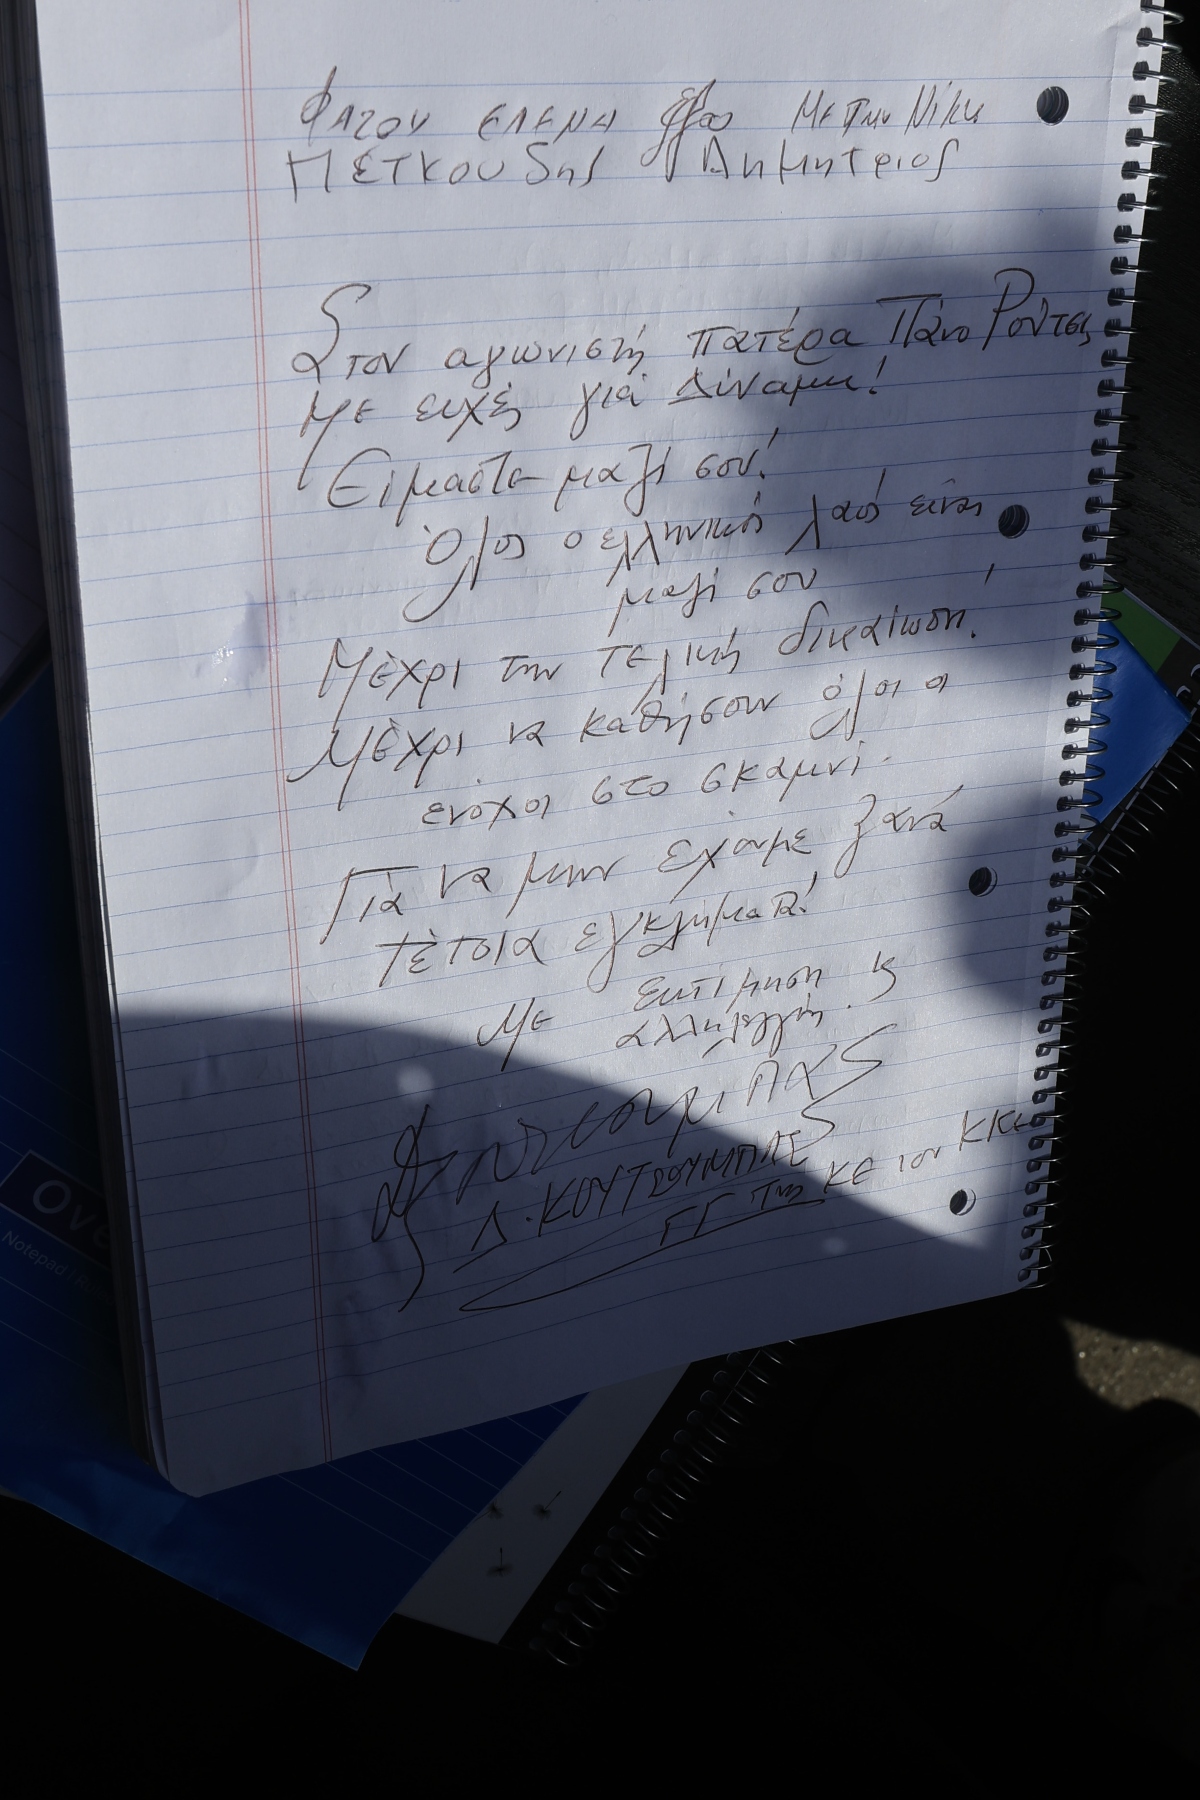 ΕΛΕΝΑ Με την Νίκη
ΠΕΤΚΟΥδης Δημητριος
Στον αγωνιστή πατέρα Πάνο Ρούτσι,
Με ευχές για Δύναμη!
Είμαστε μαζί σου!
Όλος ο ελληνικός λαός είναι
μαζί σου
Μέχρι την τελική δικαίωση!
Μέχρι να καθήσουν όλοι οι
ενόχοι στο σκαμνί.
Για να μην έχουμε ξανά
τέτοια εγκλήματα!
Με εκτίμηση κ
αλληλεγγύη.
Δ. ΚΟΥΤΣΟΥΜΠΑΣ
ΓΓ της ΚΕ του ΚΚΕ
Ove
Notepad